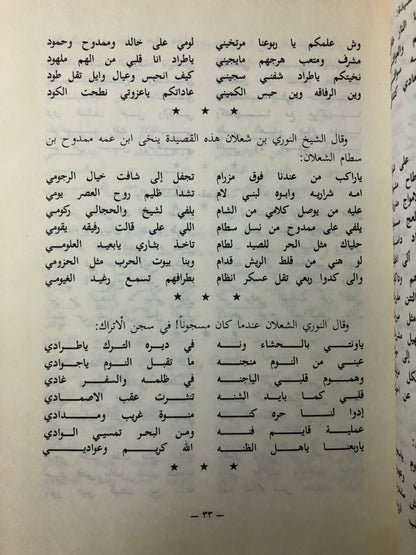 وش علمكم يا ربوعنا مرتخيني لومي على خالد وممدوح وحمود
مشرف ومتعب هرجهم مايجيني ياطراد انا قلبي من الهم ملهود
نخيتكم ياطراد شفني سجيني كيف انحبس وعيال وايل تقل طود
وين الرفاقه وين حبس الكميني عاداتكم ياعزوتي نطحت الكود
* * *
وقال الشيخ النوري بن شعلان هذه القصيدة ينخى ابن عمه ممدوح بن
سطام الشعلان:
ياراكب من عندنا فوق مزرام تجفل إلى شافت خيال الرجومي
امه شراريه وابوه لبني لام تشدا ظليم روح العصر يومي
عليه من يوصل كلامي من الشام يلفي لشيخ والحجالي ركومي
يلفي على ممدوح من نسل سطام اللي على قالت رفيقه يقومي
حلياك مثل الحر للصيد لطام تاخذ بثاري يابعيد العلومي
لو هني من قلط الريش قدام وبنا بيوت الحرب مثل الحزومي
والى كدوا ربعي تقل عسكر انظام بطرافهم تسمع رغيد الغيومي
* * *
وقال النوري الشعلان عندما كان مسجوناً! في سجن الأتراك:
ياونتي بالحشاء ونه في ديره الترك ياطرادي
عيني من النوم منجنه ما تقبل النوم ياجوادي
وهموم قلبي الياجنه في ظلمه والسفر غادي
قلبي كما بايد الشنه تنثرت عقب الاصمادي
إدوا لنا حره كنه منوة غريب ومدادي
عملية قايم فنه ومن البحر تمسي الوادي
ياربعنا ياهل الظنه الله كريم وعواديي
* * *
— ٣٣ —